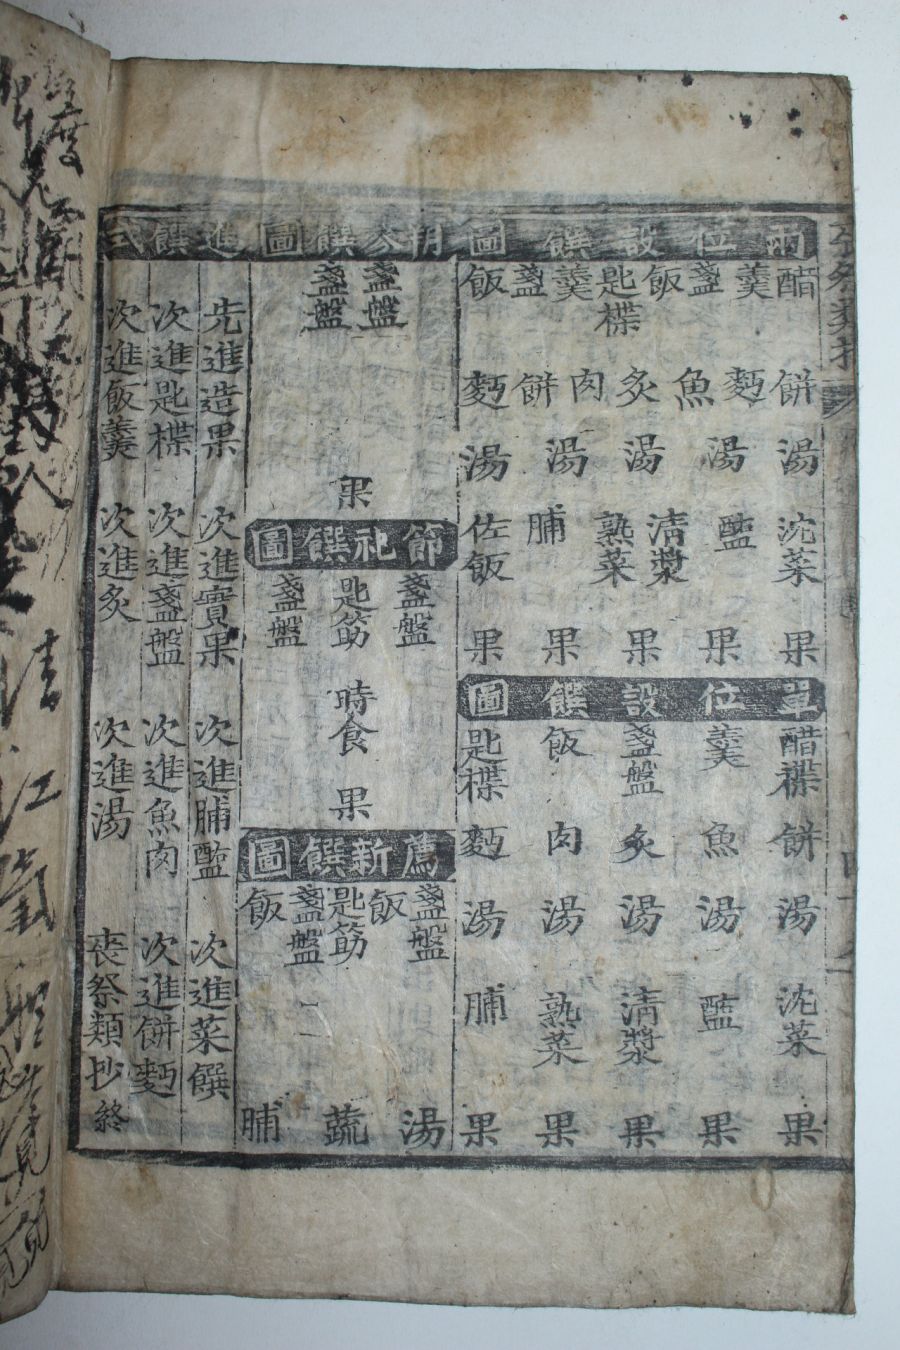 兩位設饌圖
醋 羹 盞 飯 匙楪 羹 盞 飯
餅 麪 魚 炙 肉 餅 麪
湯 湯 湯 湯 湯
沈菜 醢 清漿 熟菜 脯 佐飯
果 果 果 果 果
單位設饌圖
醋楪 羹 盞盤 飯 匙楪
餅 魚 炙 肉 麪
湯 湯 湯 湯 湯
沈菜 醢 清漿 熟菜 脯
果 果 果 果 果
朔參饌圖
盞盤 盞盤
果
節祀饌圖
盞盤 匙筯 盞盤
時食
果
薦新饌圖
盞盤 飯 匙筯 盞盤 飯
湯 蔬 脯
進饌式
先進造果 次進實果 次進脯醢 次進菜饌
次進匙楪 次進盞盤 次進魚肉 次進餅麪
次進飯羹 次進炙 次進湯 喪祭類抄終